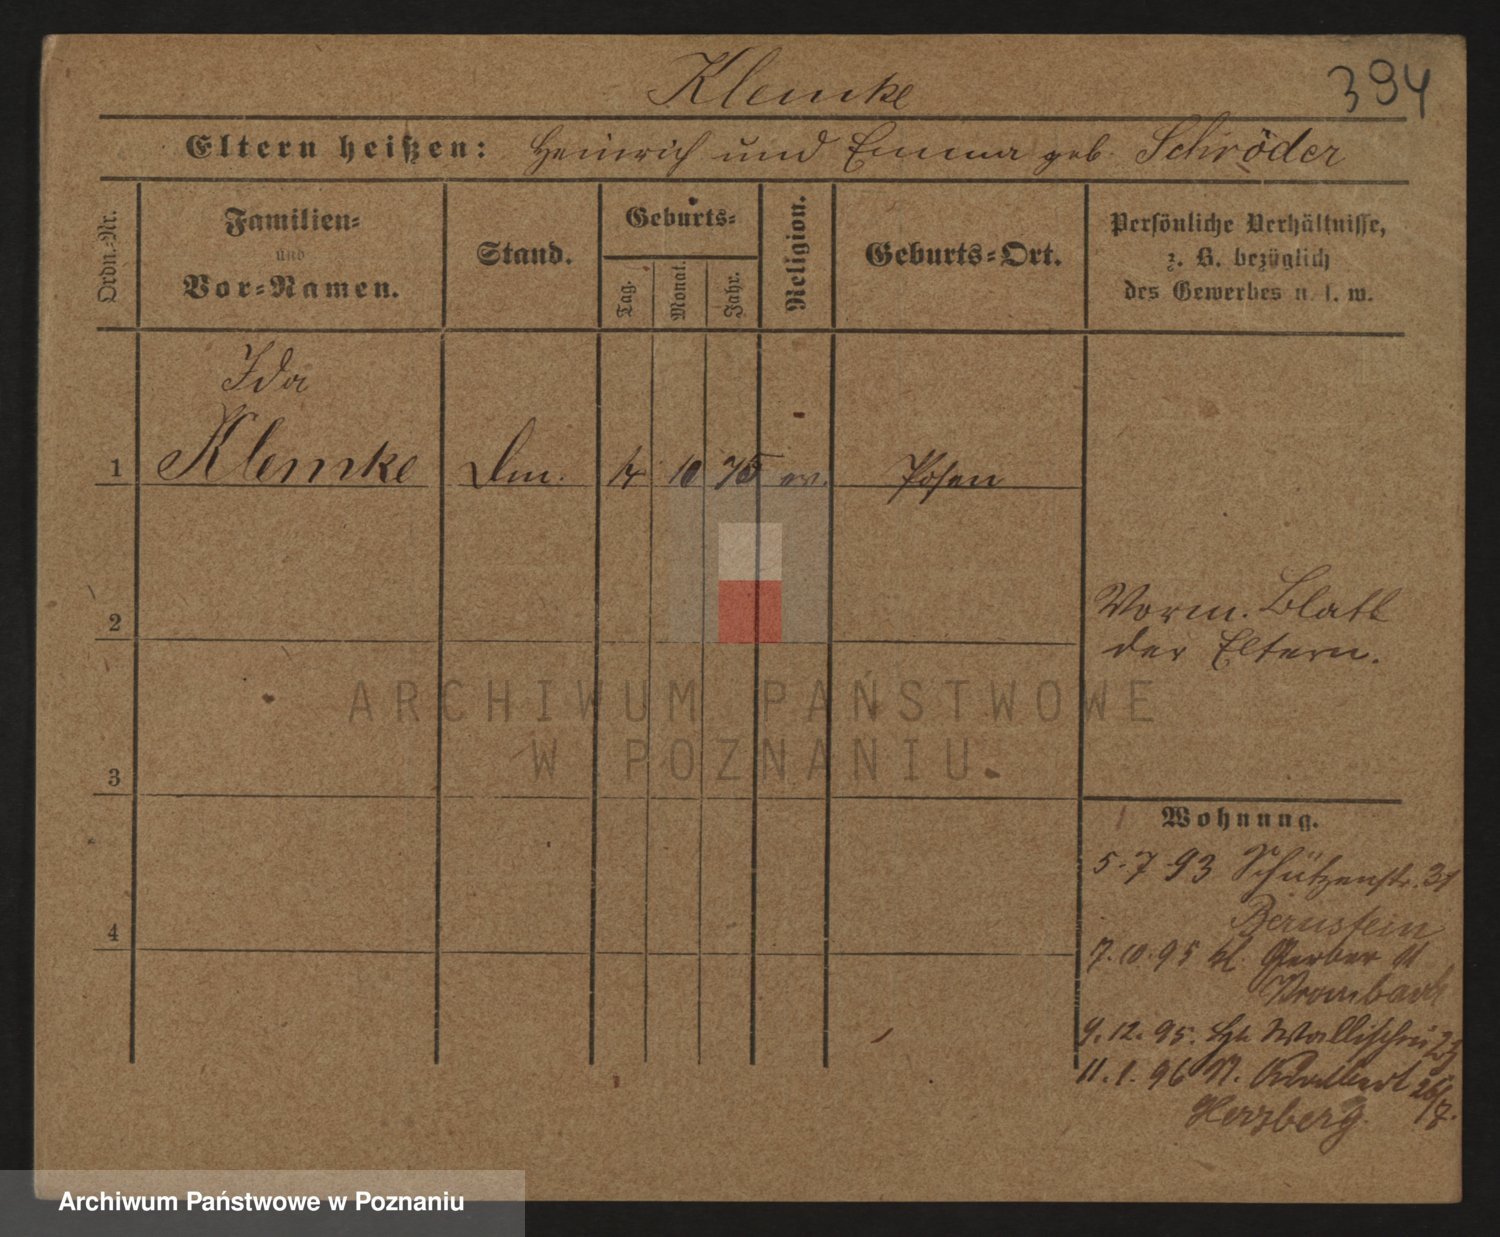 Klemke
394
Eltern heißen: Heinrich und Emma geb. Schröder
Ordn.-Nr.
Familien-
und
Vor-Namen.
Stand.
Geburts-
Tag.
Monat.
Jahr.
Religion.
Geburts-Ort.
Persönliche Verhältnisse,
z. B. bezüglich
des Gewerbes u. s. w.
Ida
1 Klemke 10 75 ev. Posen
2
Vorm. Blatt
der Eltern.
3
4
ARCHIWUM PAŃSTWOWE
W POZNANIU
Wohnung.
5.7.93 Schützenstr. 31
Bernstein
7.10.95 kl. Gerber 11
9.12.95. Wallischei
11.1.96 Adalbert
Herzberg.
Archiwum Państwowe w Poznaniu